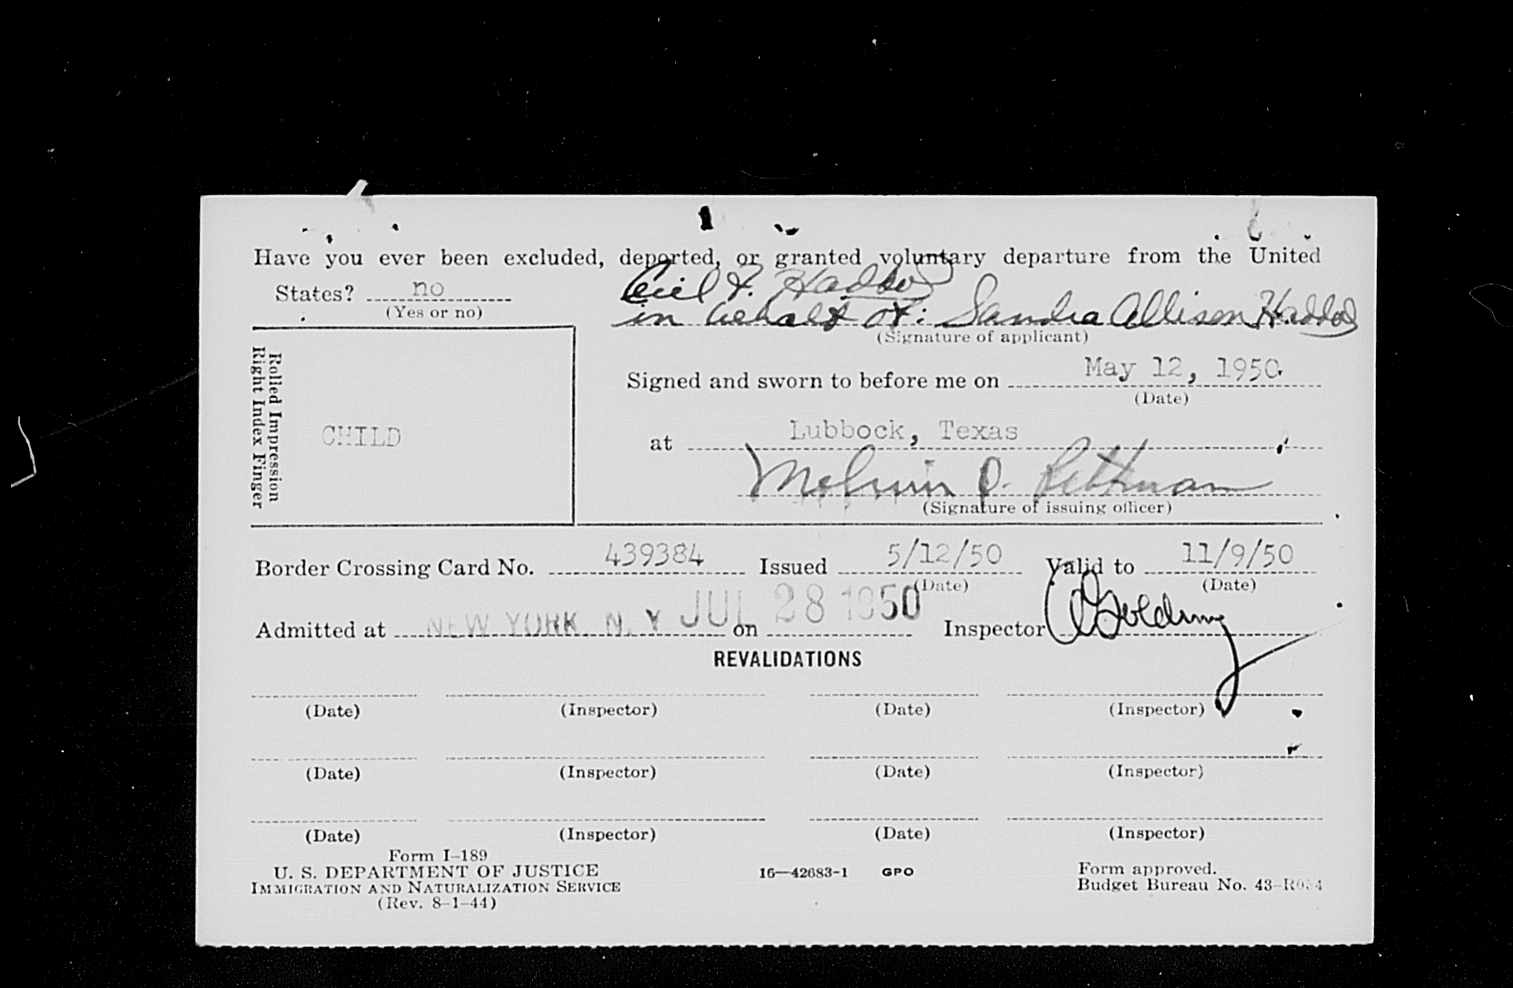 Have you ever been excluded, deported, or granted voluntary departure from the United
States? no
(Yes or no)
Cecil F. Haddox
in behalf of: Sandra Allison Haddox
(Signature of applicant)
Rolled Impression
Right Index Finger
CHILD
Signed and sworn to before me on May 12, 1950.
(Date)
at Lubbock, Texas
Melvin P.
(Signature of issuing officer)
Border Crossing Card No. 439384 Issued 5/12/50 Valid to 11/9/50
(Date) (Date)
Admitted at NEW YORK N. Y on JUL 28 1950 Inspector
REVALIDATIONS
(Date) (Inspector) (Date) (Inspector)
(Date) (Inspector) (Date) (Inspector)
(Date) (Inspector) (Date) (Inspector)
Form I-189
U. S. DEPARTMENT OF JUSTICE
IMMIGRATION AND NATURALIZATION SERVICE
(Rev. 8-1-44)
16—42683-1 GPO
Form approved.
Budget Bureau No. 43-